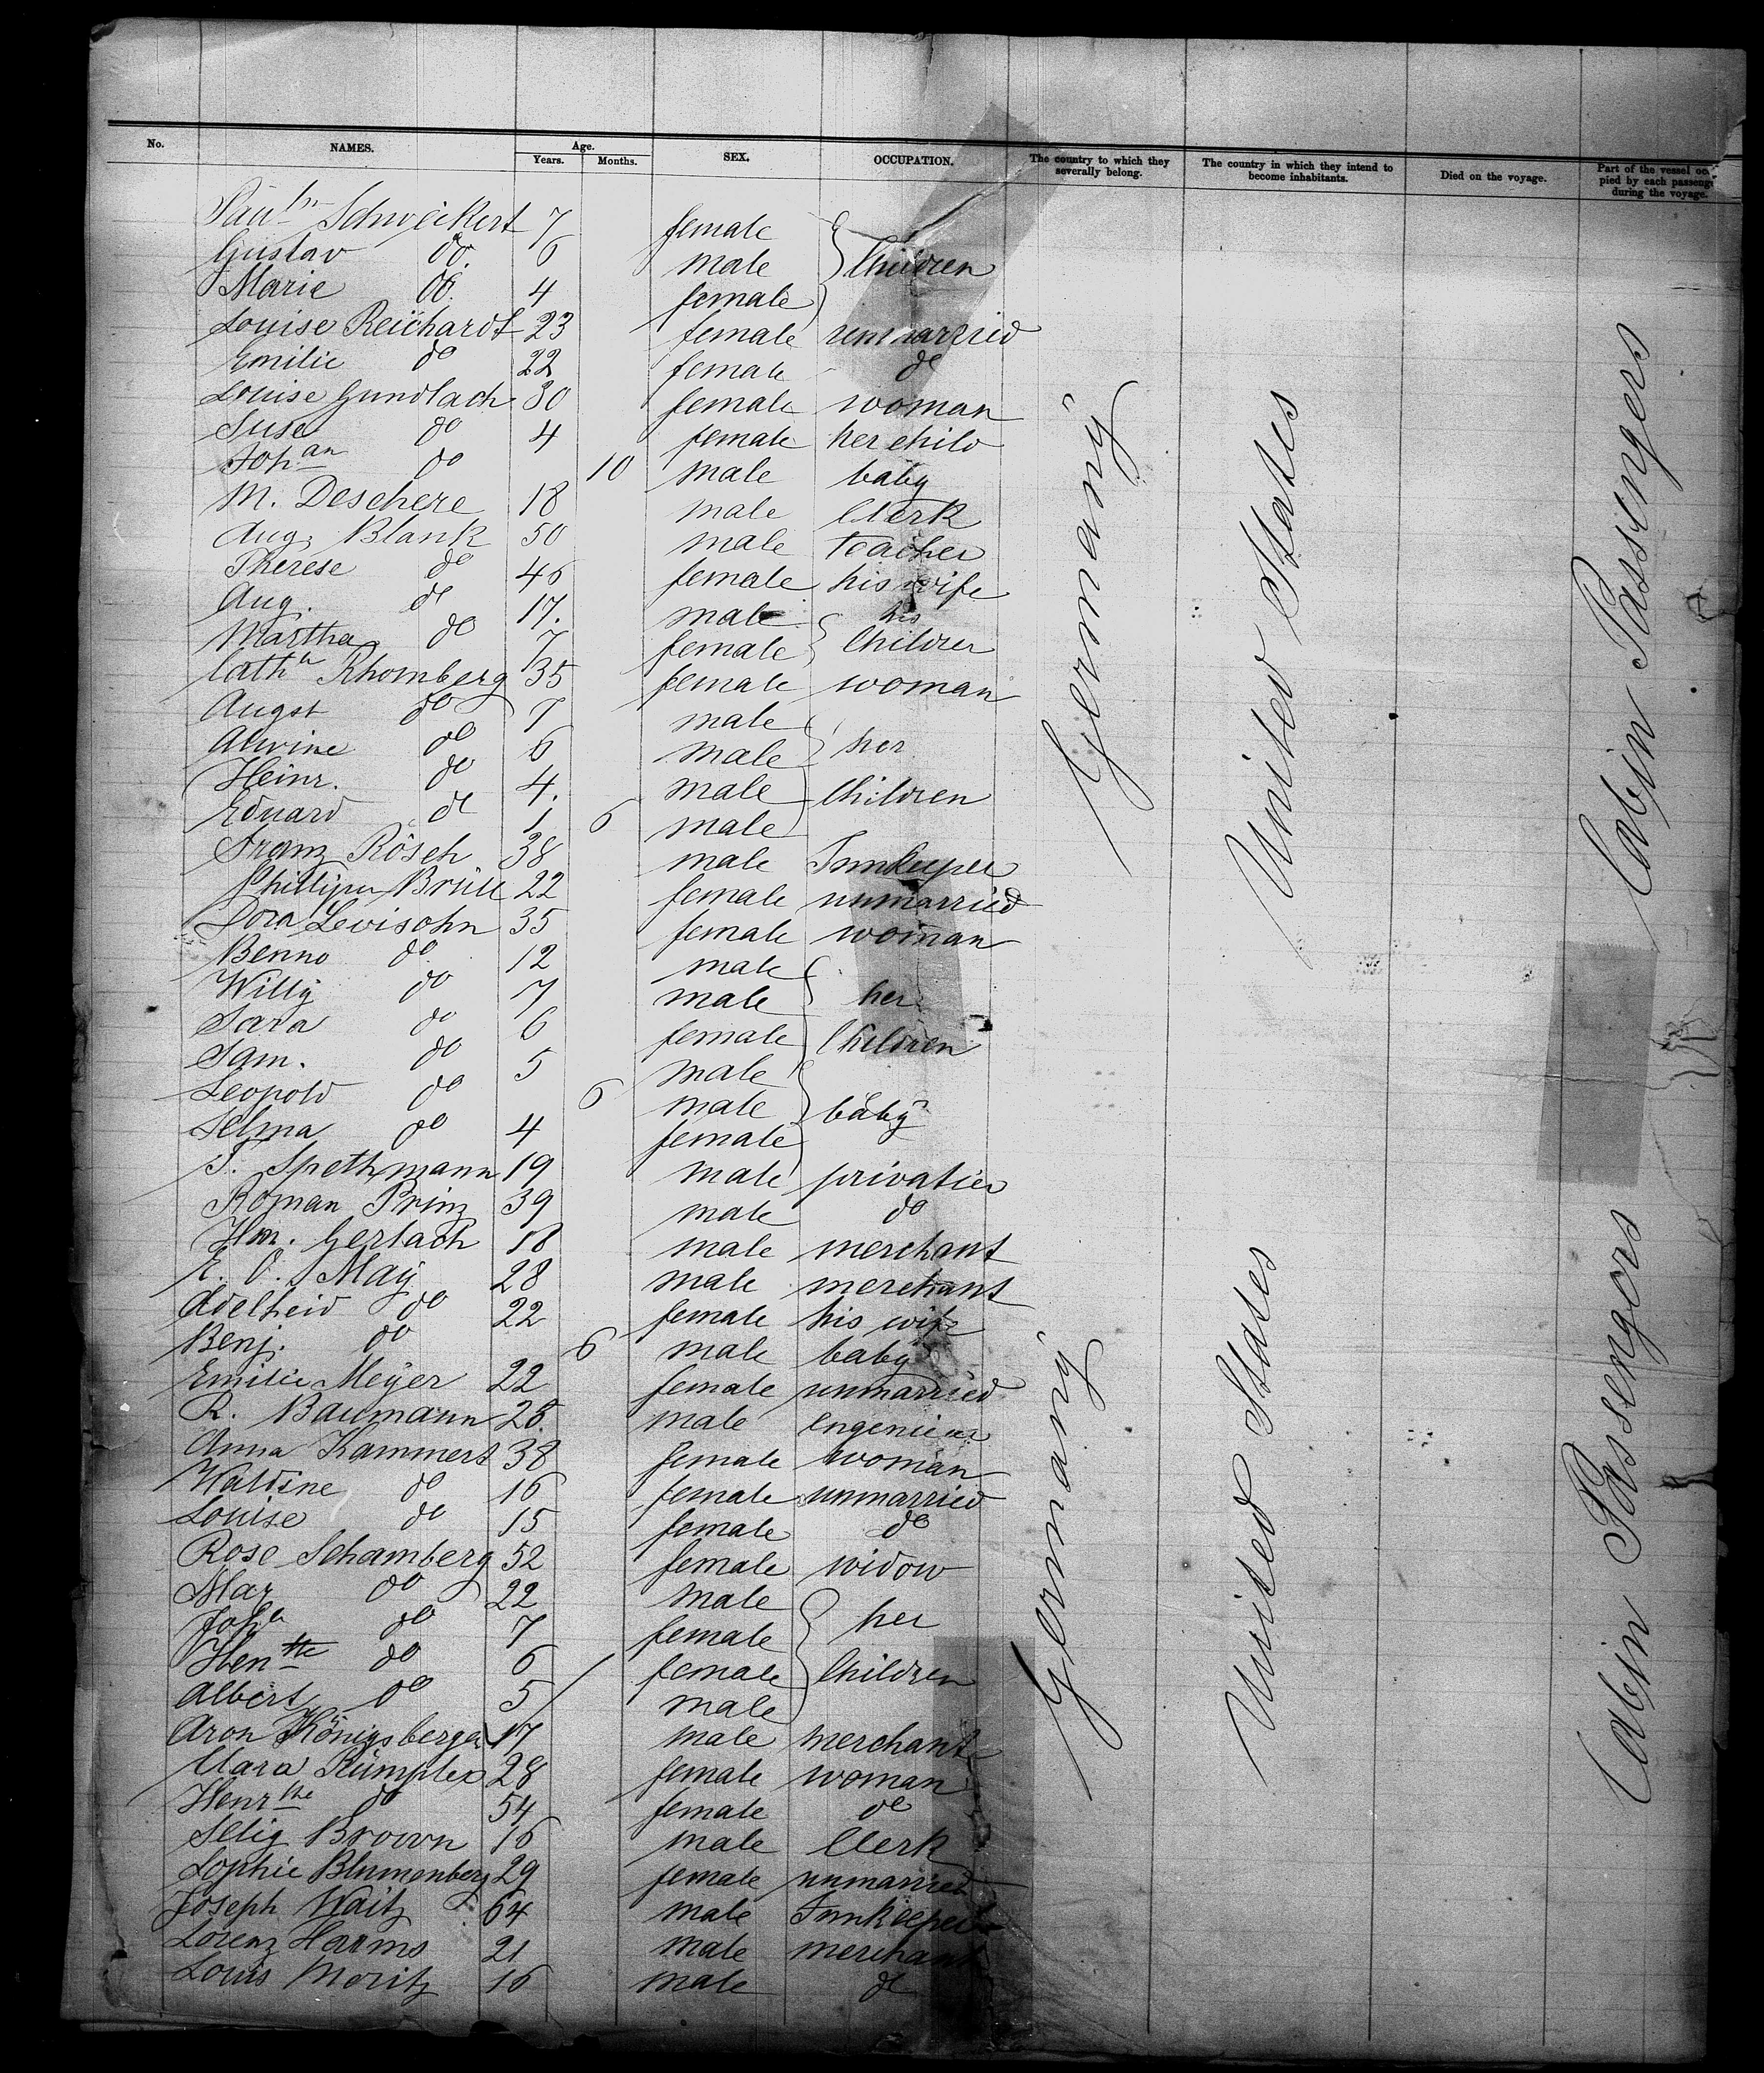 No. NAMES. Age. Years. Months. SEX. OCCUPATION. The country to which they severally belong. The country in which they intend to become inhabitants. Died on the voyage. Part of the vessel occupied by each passenger during the voyage.
Paulⁿ Schweikert 7 female
Gustav do. 6 male } Children
Marie do. 4 female
Louise Reichardt 23 female unmarried
Emilie do 22 female do
Louise Gundlach 30 female woman
Suse do 4 female her child
Johan do 10 male baby
M. Deschere 18 male Clerk
Aug. Blank 50 male teacher
Therese do 46 female his wife
Aug. do 17. male his
Martha do 7 female Children
Cathⁿ Rhomberg 35 female woman
Augst do 7 male
Alwine do 6 male her
Heinr. do 4. male Children
Eduard do 1 6 male
Franz Rösch 38 male Innkeeper
Brüll 22 female unmarried
Dora Levisohn 35 female woman
Benno do 12 male
Willy do 7 male her
Sara do 6 female Children
Sam. do 5 male
Leopold do 6 male baby
Selma do 4 female
Spethmann 19 male privatier
Roman Prinz 39 male do
Hm. Gerlach 18 male merchant
E. O. May 28 male merchant
Adelheid do 22 female his wife
Benj. do 6 male baby
Emilie Meyer 22 female unmarried
R. Baumann 28 male engenieur
Anna Kammert 38 female woman
Waldine do 16 female unmarried
Louise do 15 female do
Rose Schamberg 52 female widow
Max do 22 male
Johª do 7 female her
Hentte do 6 female Children
Albert do 5 male
Aron Königsberger 17 male merchant
Clara Rümpler 28 female woman
Henrtte do 54 female do
Selig Brown 16 male Clerk
Sophie Blumenberg 29 female unmarried
Joseph Waitz 64 male Innkeeper
Lorenz Harms 21 male merchant
Louis Moritz 16 male do
Germany
United States
Cabin Passengers
Germany
United States
Cabin Passengers